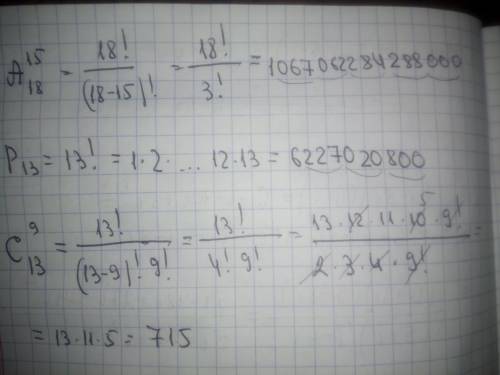 A₁₈¹⁵ = 18! / (18-15)! = 18! / 3! = 1067062284288000
P₁₃ = 13! = 1·2· ... 12·13 = 6227020800
C₁₃⁹ = 13! / (13-9)! 9! = 13! / 4! 9! = 13·12·11·10⁵·9! / 2·3·4·9! =
= 13·11·5 = 715